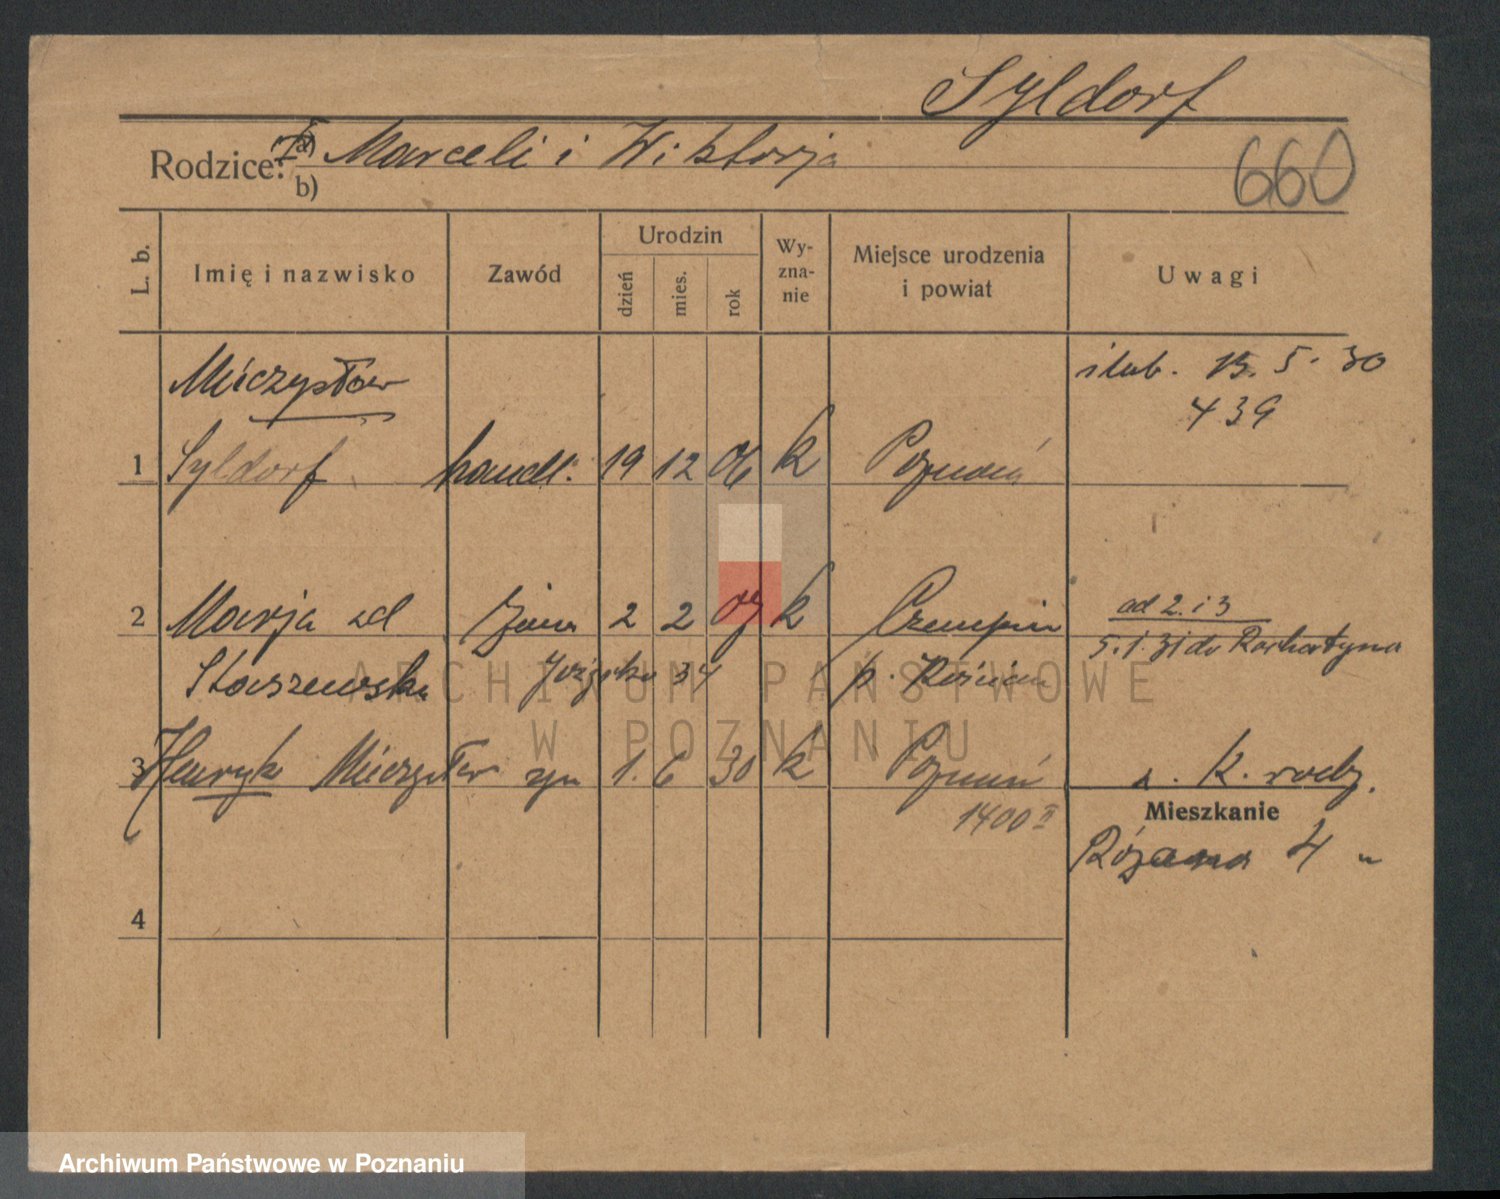 Syldorf
Rodzice: a) Marceli i Wiktorja
b)
660
L. b.
Imię i nazwisko
Zawód
Urodzin
dzień
mies.
rok
Wy-
zna-
nie
Miejsce urodzenia
i powiat
Uwagi
Mieczysław
ślub. 15. 5. 30
439
1 Syldorf handl. 19 12 06 k Poznań
2 Marja zd żona 2 2 07 k Czempiń
ad 2. i 3
5.1.31 do Rochatyna
Staszewska 34 p. Kościan
3 Henryk Mieczysław syn 1. 6 30 k Poznań
k. rodz.
1400 II
Mieszkanie
Różana 4
4
ARCHIWUM PAŃSTWOWE
W POZNANIU
Archiwum Państwowe w Poznaniu